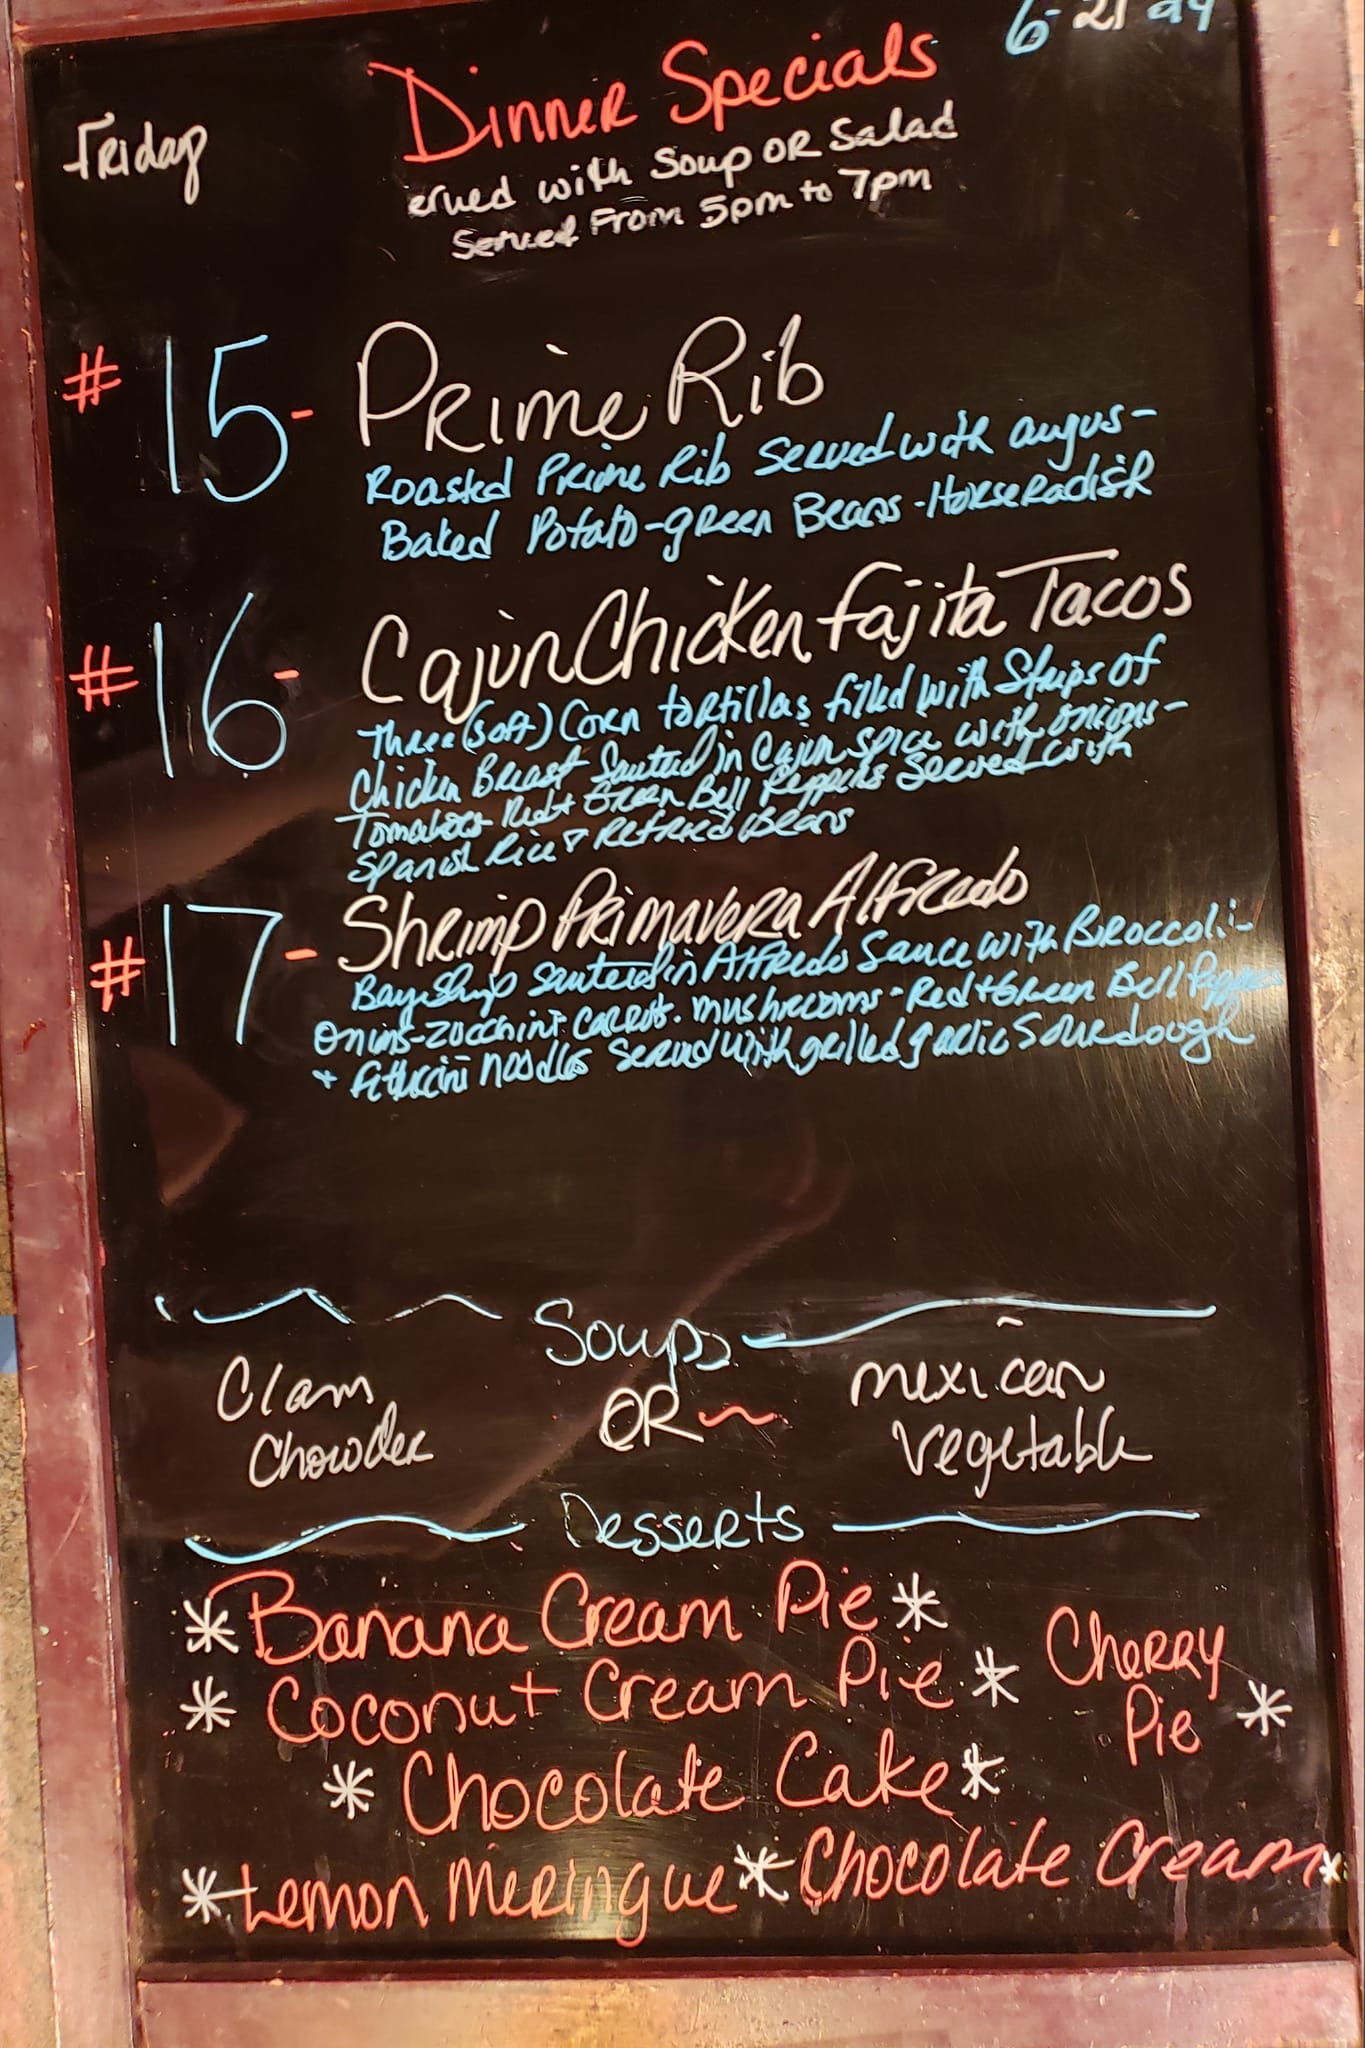 6-21 24
Friday
Dinner Specials
erved with Soup OR Salad
Served From 5pm to 7pm
#15- Prime Rib
Roasted Prime Rib Served with augus-
Baked Potato-green Beans-Horseradish
#16- Cajun Chicken Fajita Tacos
Three (soft) Corn tortillas filled with Strips of
Chicken Breast Sauted in Cajun Spice with onions-
Tomatoes-Red+Green Bell Peppers Served with
Spanish Rice & Refried Beans
#17- Shrimp Primavera Alfredo
Bay Shrimp Sauteed in Alfredo Sauce with Broccoli-
Onions-Zucchini-Carrots-mushrooms-Red+Green Bell Peppers
+ fettuccini noodles Served with grilled garlic Sourdough
Soups
Clam
Chowder
OR~
mexican
vegetable
Desserts
*Banana Cream Pie*
*Coconut Cream Pie*
Cherry
Pie*
*Chocolate Cake*
*Lemon Meringue*Chocolate Cream*